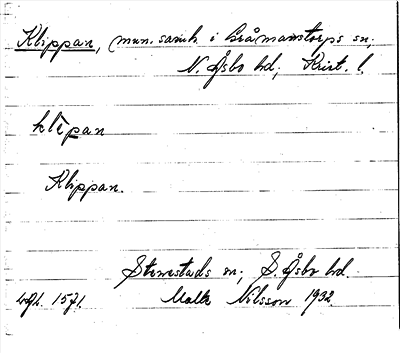 Klippan, mun. samh. i Gråmanstorps sn;
N. Åsbo hd; Krist. l.
klepan
Klippan.
Stenestads sn; S. Åsbo hd.
1571. Malte Nilsson 1932